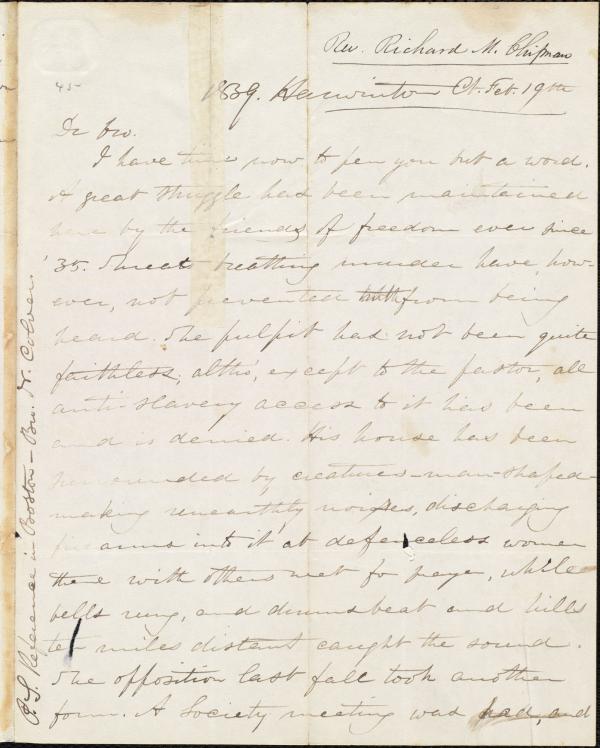 45-
Rev. Richard M. Chipman
1839. Harwinton Ct. Feb. 19th
Dr bro.
I have time now to pen you but a word.
A great struggle has been maintained
here by the friends of freedom ever since
'35. Threats breathing murder have, how-
ever, not prevented truth from being
heard. The pulpit has not been quite
faithless, altho', except to the pastor, all
anti-slavery access to it has been
and is denied. His house has been
surrounded by creatures-man-shaped-
making unearthly noises, discharging
firearms into it at defenceless women
there with others met for praye, while
bells rung, and drums beat and hills
ten miles distant caught the sound.
The opposition last fall took another
form. A Society meeting was had, and
P.S. Reference in Boston - Bro. N. Colver.